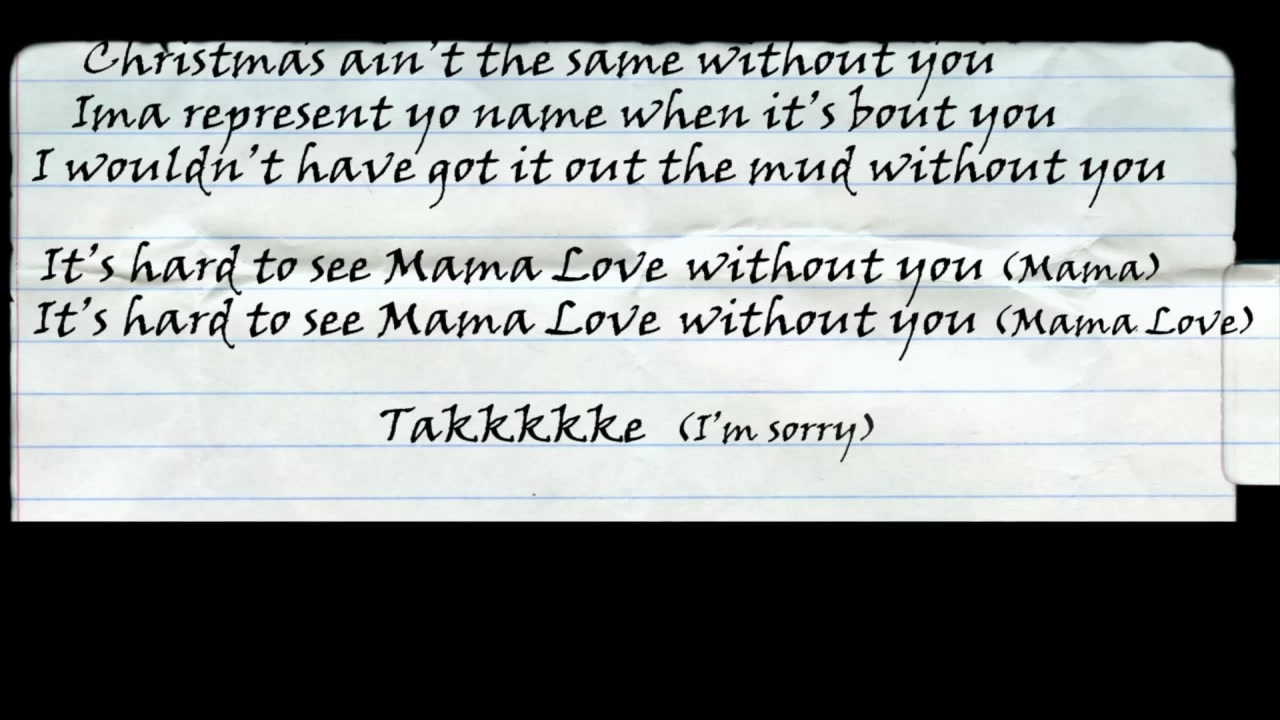 Christmas ain't the same without you
Ima represent yo name when it's bout you
I wouldn't have got it out the mud without you
It's hard to see Mama Love without you (Mama)
It's hard to see Mama Love without you (Mama Love)
Takkkkke (I'm sorry)